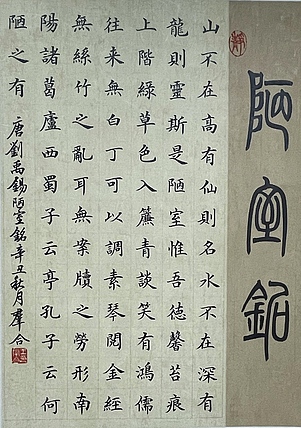 陋室銘
山不在高有仙則名水不在深有
龍則靈斯是陋室惟吾徳馨苔痕
上階綠草色入簾青談笑有鴻儒
往来無白丁可以調素琴閱金經
無絲竹之亂耳無案牘之勞形南
陽諸葛廬西蜀子云亭孔子云何
陋之有
唐劉禹錫陋室銘辛丑秋月羣合